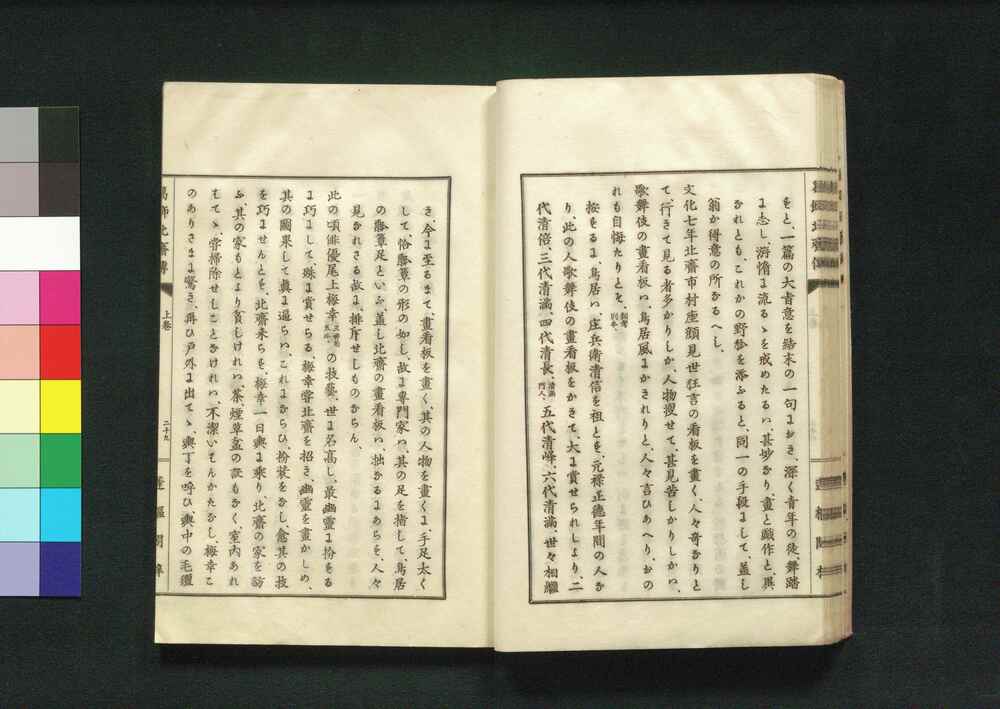 をと、一篇の大旨意を結末の一句よおき、深く青年の徒、舞踏
よ志し、游惰よ流るゝを戒めたるハ、甚妙なり、畫と戯作と、異
なれとも、これかの野趣を添ふると、同一の手段よして、蓋し
翁か得意の所なるへし、
文化七年北齋市村座顔見世狂言の看板を畫く、人々奇なりと
て、行きて見る者多かりしか、人物痩せて、甚見苦しかりしかハ、
歌舞伎の畫看板ハ、鳥居風よかきれりと、人々言ひあへり、おの
れも自悔たりとそ、
按をるよ、鳥居ハ、庄兵衛清信を祖とを、元禄正德年間の人な
り、此の人歌舞伎の畫看板をかきて、大よ賞せられしより、二
代清倍、三代清滿、四代清長、清滿門人、五代清峰、六代清滿、世々相繼
き、今よ至るまて、畫看板を畫く、其の人物を畫くよ、手足太く
して、恰の形の如し、故よ專門家ハ、其の足を指して、鳥居
の足といふ、蓋し北齋の畫看板ハ、拙なるよあらを、人々
見なれさる故よ、排斥せしものならん、
此の頃俳優尾上梅幸の技藝、世よ名高し、最幽靈よ扮をる
よ巧よして、殊よ賞せらる、梅幸甞北齋を招き、幽靈を畫かしめ、
其の圖果して眞よ逼らハ、これよならひ、扮裝をなし、愈其の技
を巧よせんとを、北齋來らを、梅幸一日輿よ乘り、北齋の家を訪
ふ、其の家もとより貧しけれハ、茶、煙草盆の設もなく、室内あれ
はてゝ、甞掃除せしことなけれハ、不潔いはんかたなし、梅幸こ
のありさまよ驚き、再ひ戸外よ出てゝ、輿丁を呼ひ、輿中の毛氈
上卷
二十九